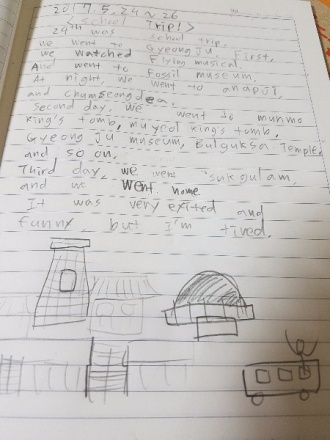 2017. 5. 24 ~ 26
< School Trip! >
24th was school trip.
we went to Gyeongju. First,
we watched Flying musical.
And went to Fossil museum.
At night, we went to anapji
and Chumseongdea.
Second day, we went to munmo
king's tomb, muyeol king's tomb,
Gyeong ju museum, Bulguksa Temple,
and so on.
Third day, we went sukgulam
and we went home.
It was very exited and
funny but I'm tired.